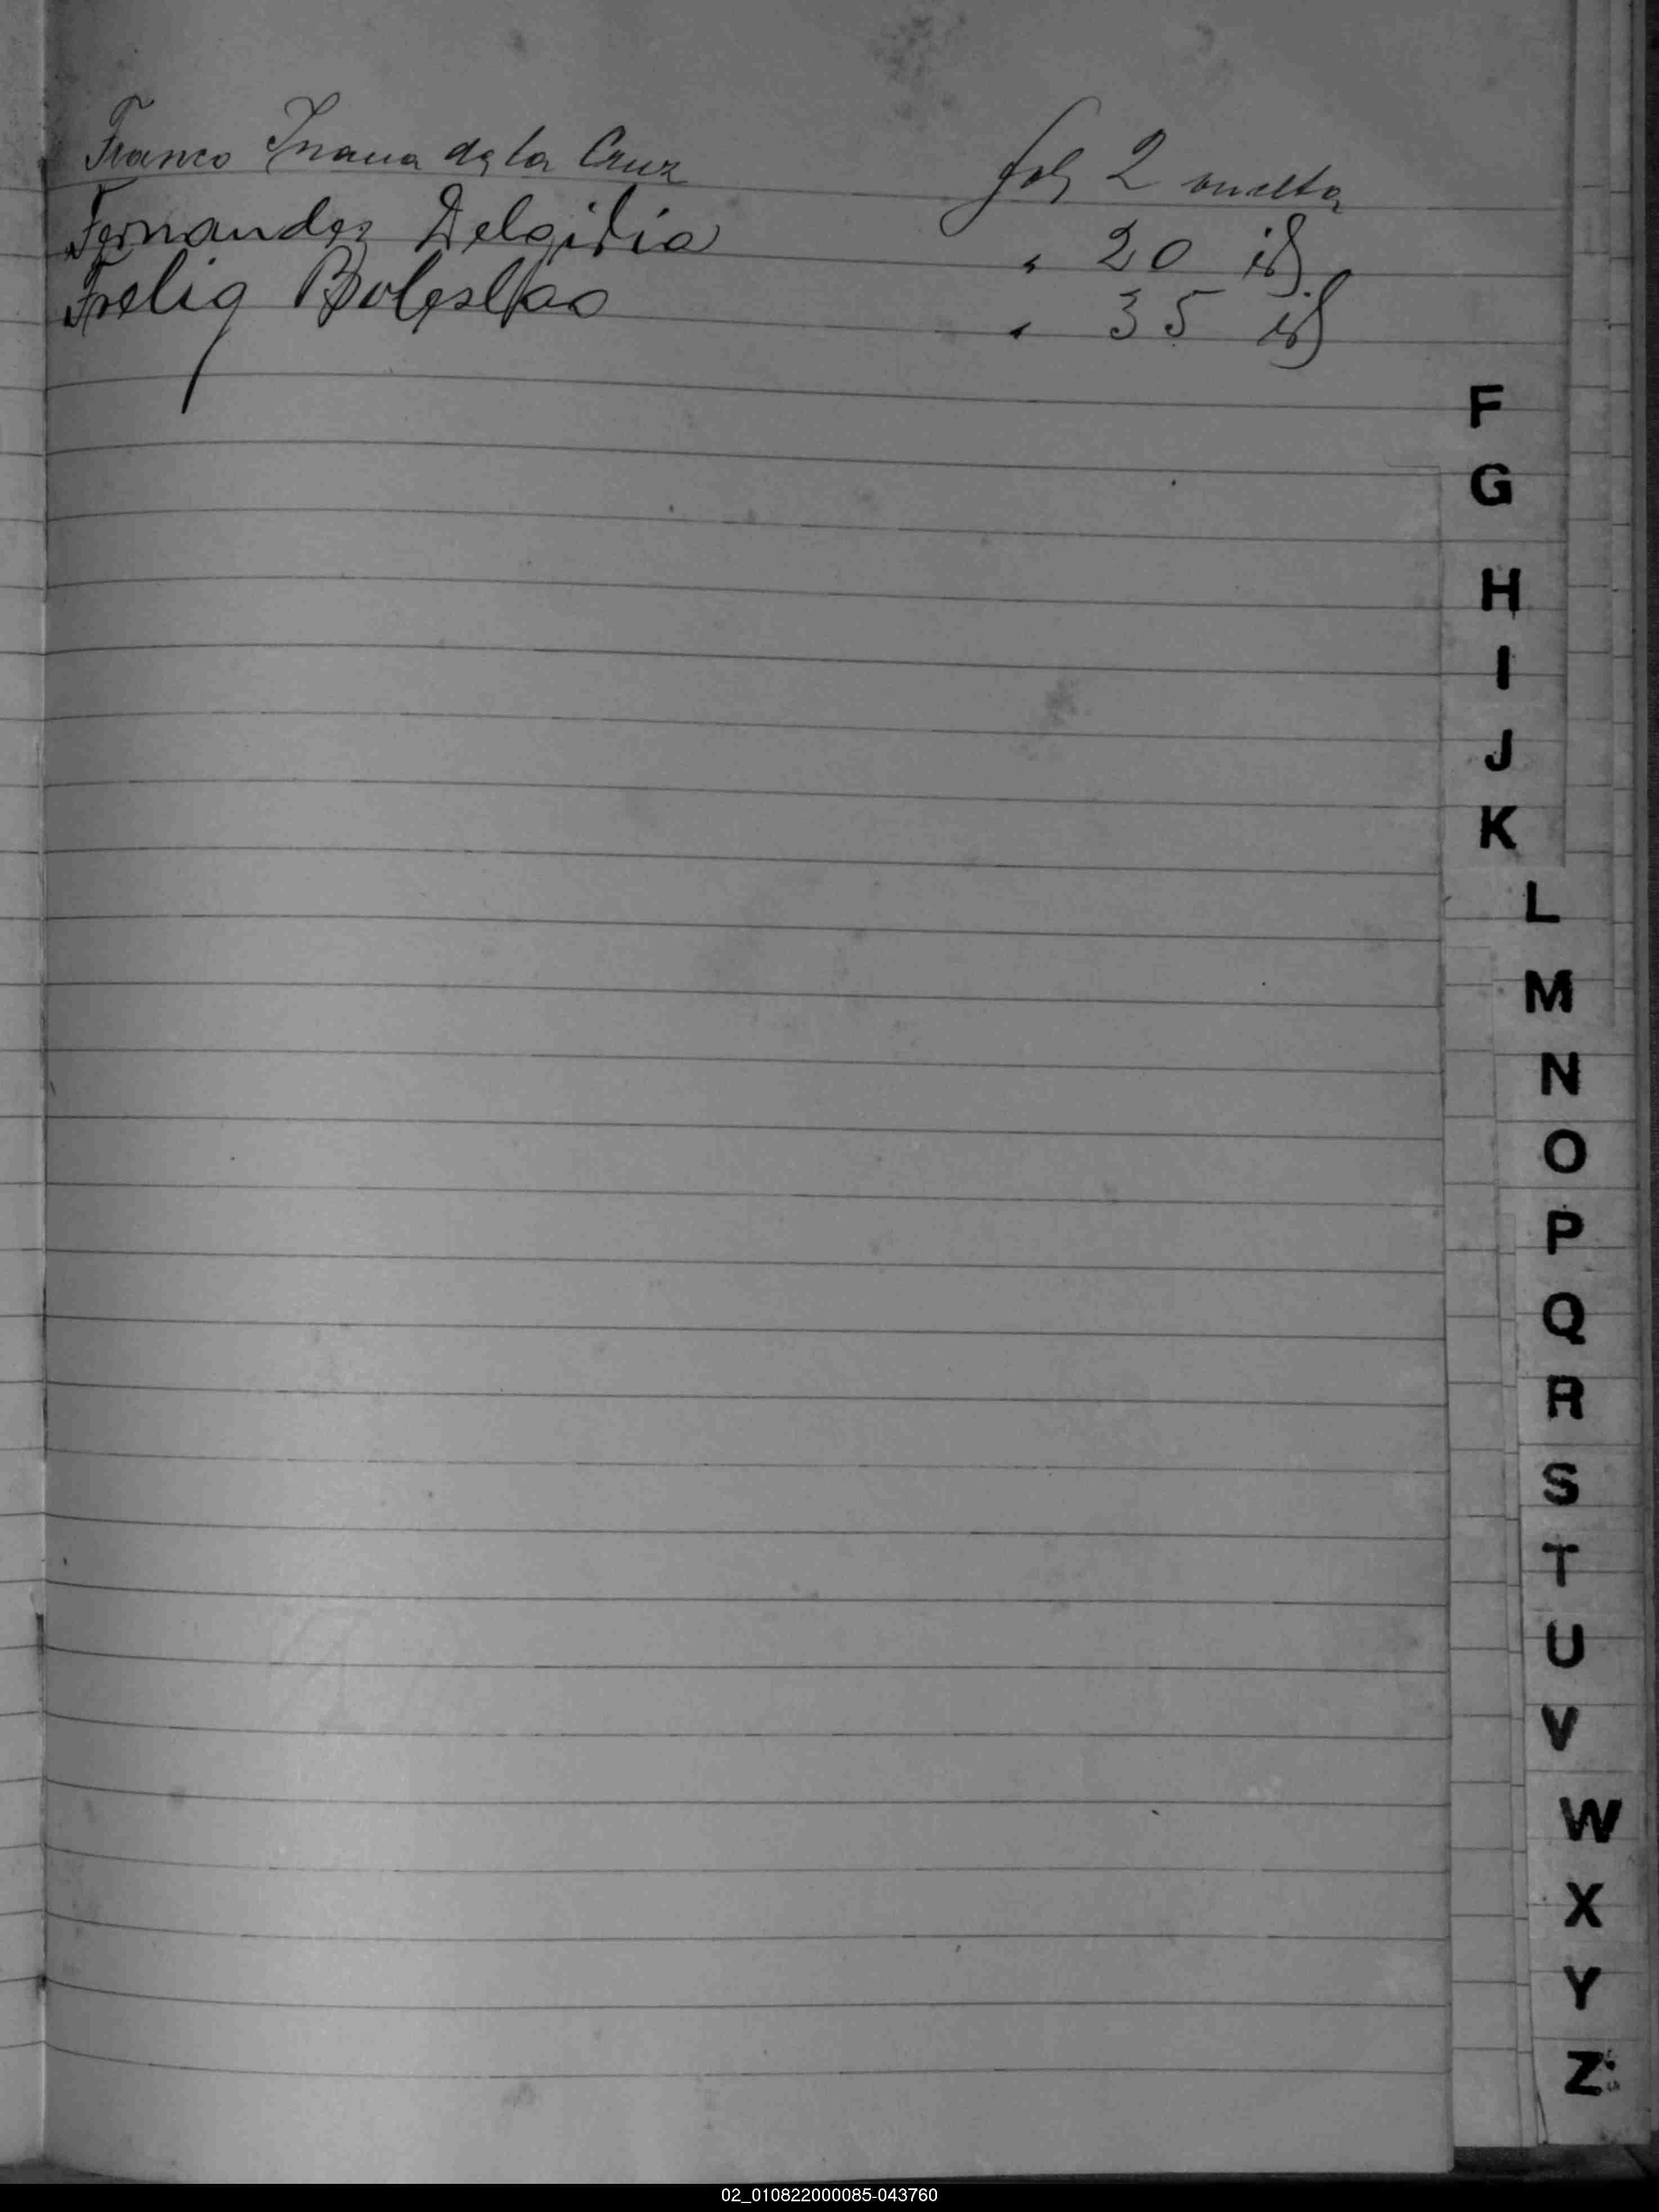 Franco Juana de la Cruz fol 2 vuelta
Fernandez Delgidia " 20 id
Frelig Boleslao " 35 id
F
G
H
I
J
K
L
M
N
O
P
Q
R
S
T
U
V
W
X
Y
Z
02_010822000085-043760